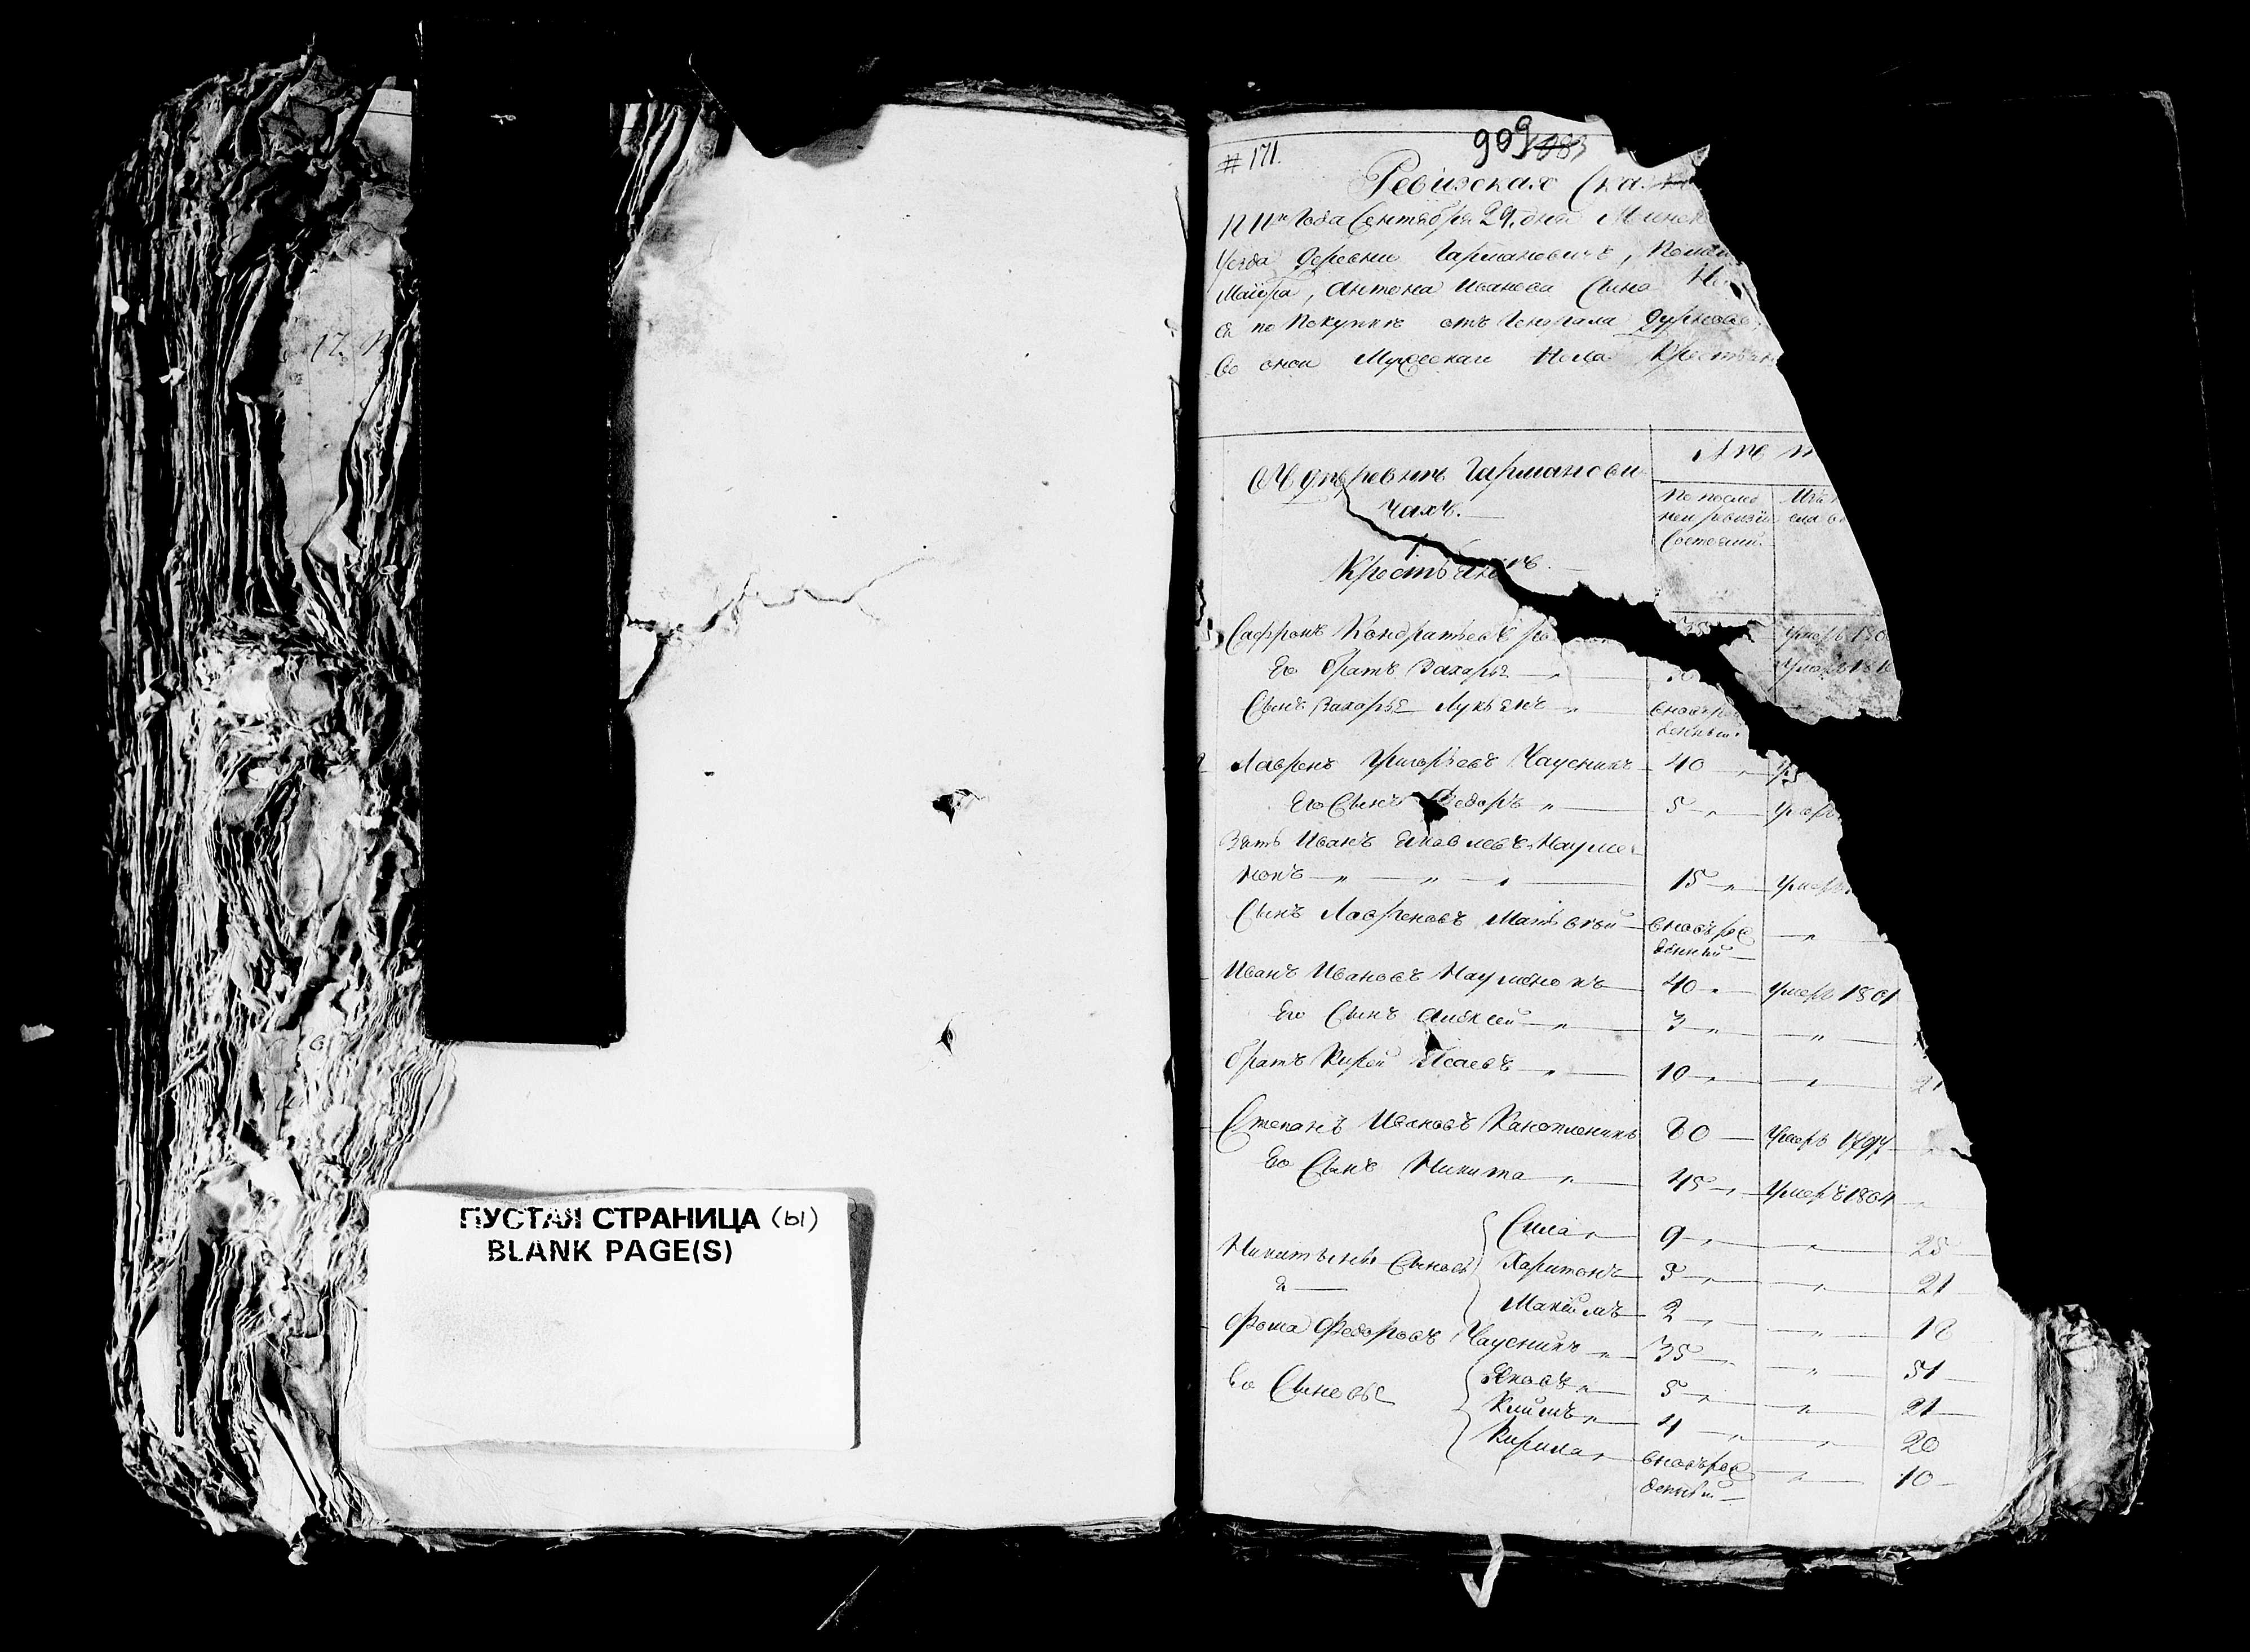 909 1083
# 171.
Ревизская Ска
1811го Года Сентября 29. дня Минск
уезда деревни Гармановичъ, Помещ
Маiора, Антона Иванова Сына
по Покупке отъ Генерала Дурново,
Во оной Мужескаго Пола Крестьян
Въ деревнѣ Гарманови
чахъ.
Крестьянъ.
Лѣ
По послѣд
ней ревизiи
Состояли
Изъ
сла
Сафронъ Кондратьевъ
35
Умеръ 180
Его братъ Захарья
Умеръ 181
Сынъ Захарья Лукьянъ
вновь рож
денный
Лавренъ Григорьевъ Чаусникъ 40
Его Сынъ Федоръ 5 Умеръ
Зять Иванъ Яковлевъ Науме
нокъ 15 Умеръ
Сынъ Лавреновъ Матвѣй вновь рож
денный
Иванъ Ивановъ Науменокъ 40 Умеръ 1801
Его Сынъ Алексѣй 3
братъ Кирей Исаевъ 10 21
Степанъ Ивановъ Канопленикъ 80 Умеръ 1797
Его Сынъ Никита 45 Умеръ 1804
Никитины Сыновь
я
Сила 9 25
Харитонъ 5 21
Максимъ 2 18
Фома Федоровъ Чаусникъ 35 51
Его Сыновья
Яковъ 5 21
Климъ 4 20
Кирила вновь рож 10
денный
ПУСТАЯ СТРАНИЦА (Ы)
BLANK PAGE(S)